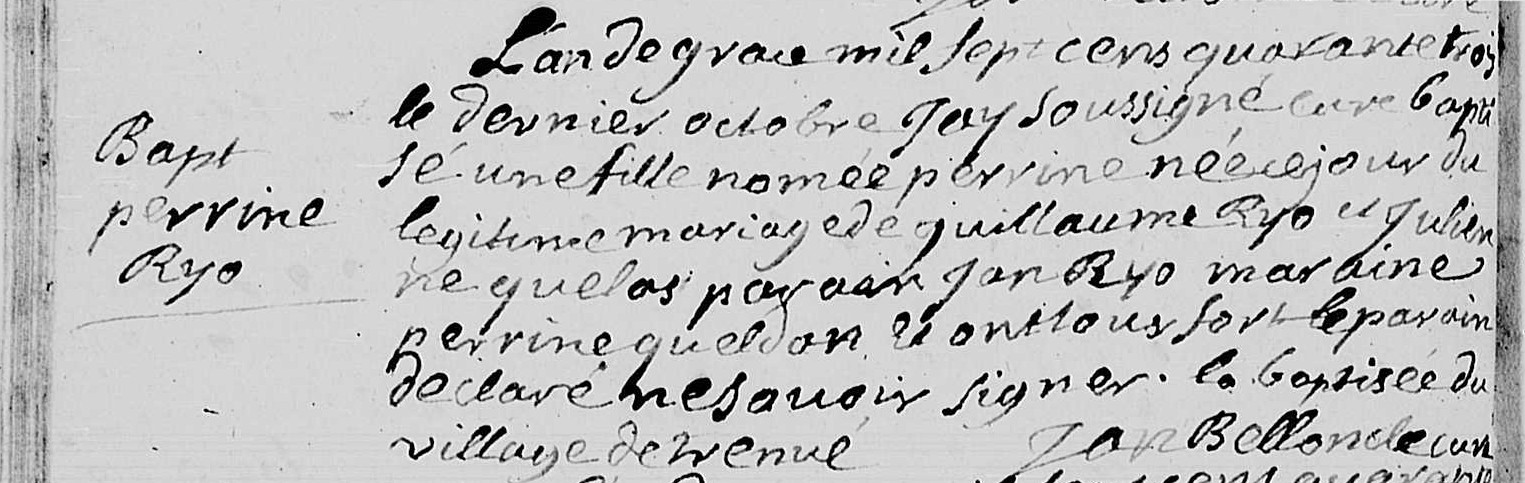 L'an de grace mil sept cens quarante trois
le dernier octobre Jay soussigné curé bapti
sé une fille nomée perrine née ce jour du
Bapt
perrine
Ryo
legitime mariage de guillaume Ryo et Julien
ne quelas parain Jan Ryo maraine
perrine queldan et ont tous fort le parain
declaré ne savoir signer. la baptisée du
village de trenué Jan Bellon